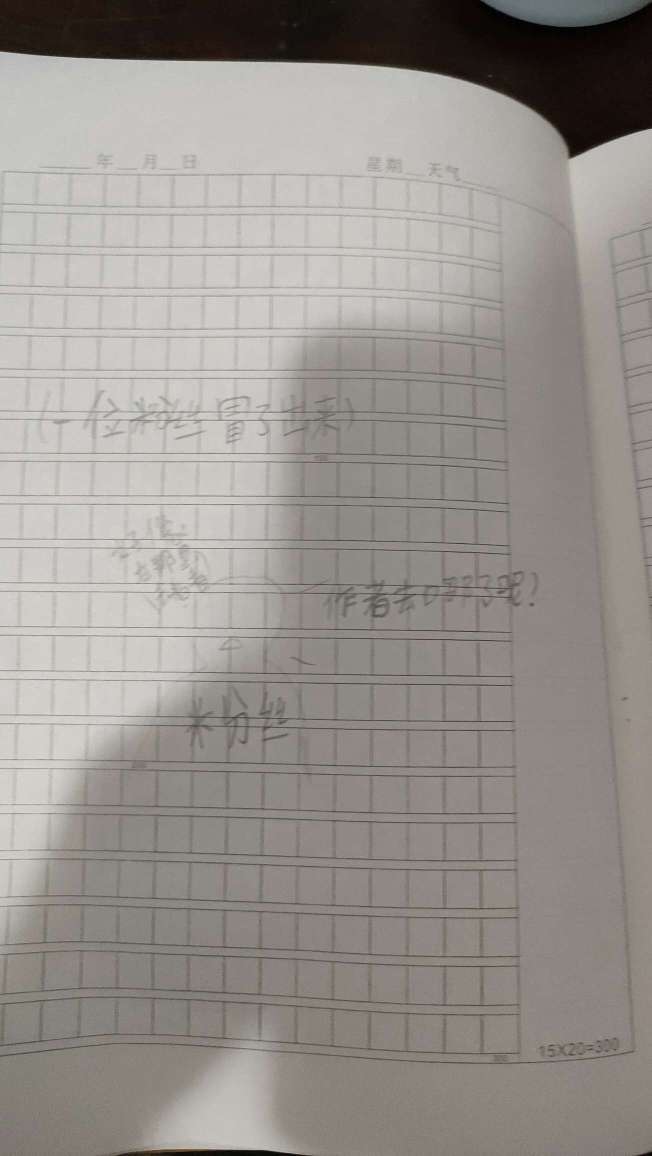 年 月 日 星期 天气
(一位粉丝冒了出来)
作者去哪了呢?
米分丝
15X20=300